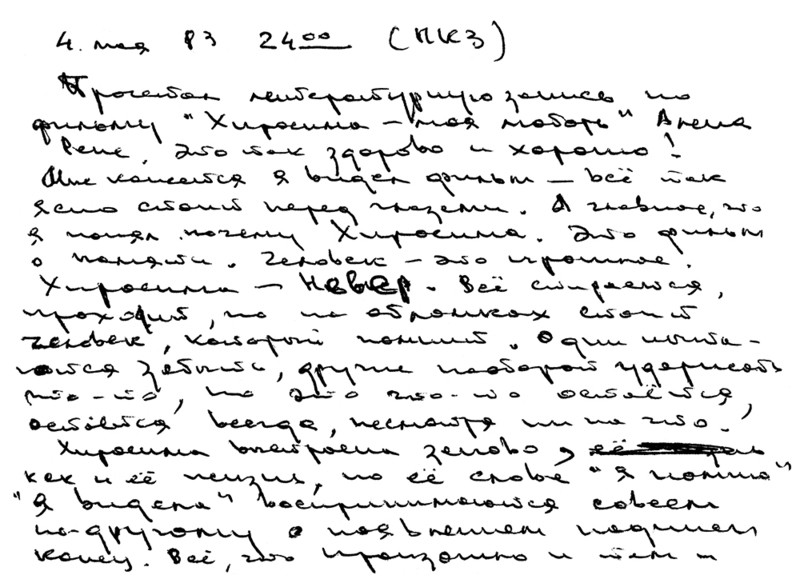 4. мая 83 24⁰⁰ (МКЗ)
Прочитал литературную запись по
фильму "Хиросима – моя любовь" Алена
Рене. Это так здорово и хорошо!
Мне кажется я видел фильм – всё так
ясно стоит перед глазами. А главное, что
я понял почему Хиросима. Это фильм
о памяти. Человек – это прошлое.
Хиросима – Невер. Всё стирается,
проходит, но на обломках стоит
человек, который помнит. Одни пыта-
ются забыть, другие наоборот удержать
что-то, но это что-то остаётся,
остаётся всегда, несмотря ни на что.
Хиросима выстроена заново, её
как и её жизнь, но её слова "Я помню"
"Я видела" воспринимаются совсем
по-другому с появлением надписи
конец. Всё, что произошло и там и